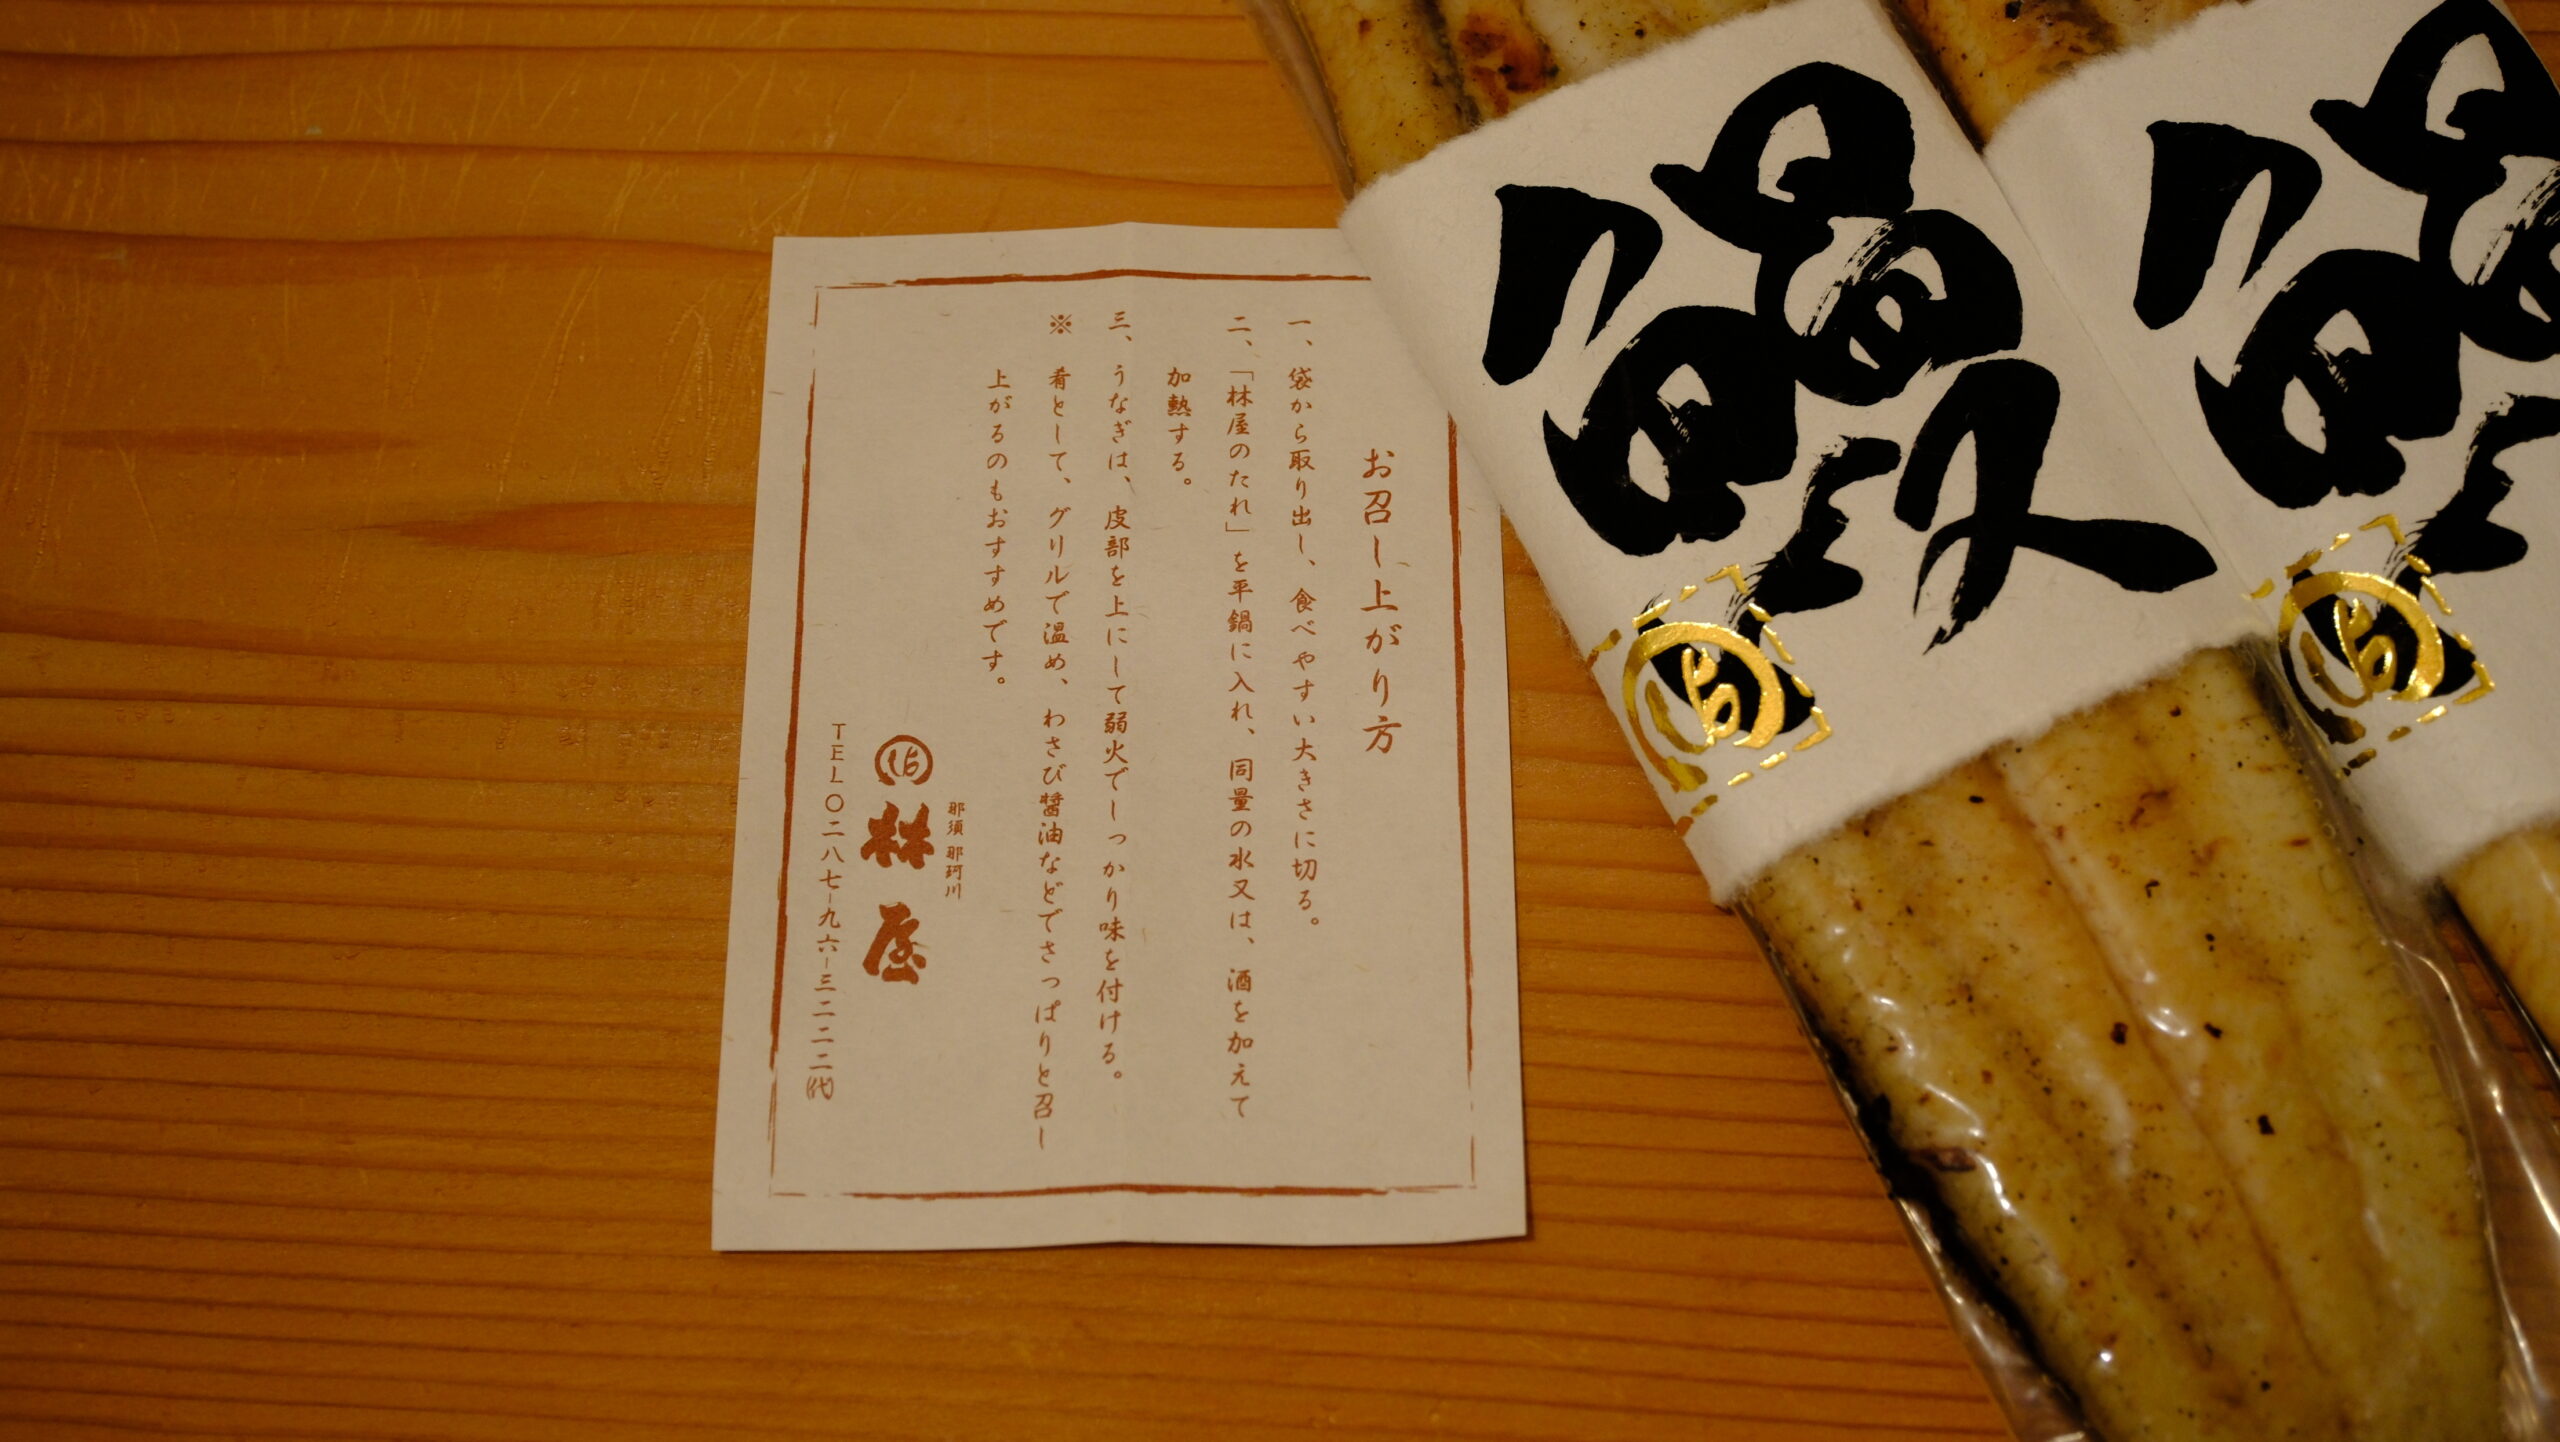 お召し上がり方
一、袋から取り出し、食べやすい大きさに切る。
二、「林屋のたれ」を平鍋に入れ、同量の水又は、酒を加えて
加熱する。
三、うなぎは、皮部を上にして弱火でしっかり味を付ける。
※ 肴として、グリルで温め、わさび醤油などでさっぱりと召し
上がるのもおすすめです。
那須 那珂川
林屋
TEL〇二八七-九六-三二二二(代)
鰻
鰻